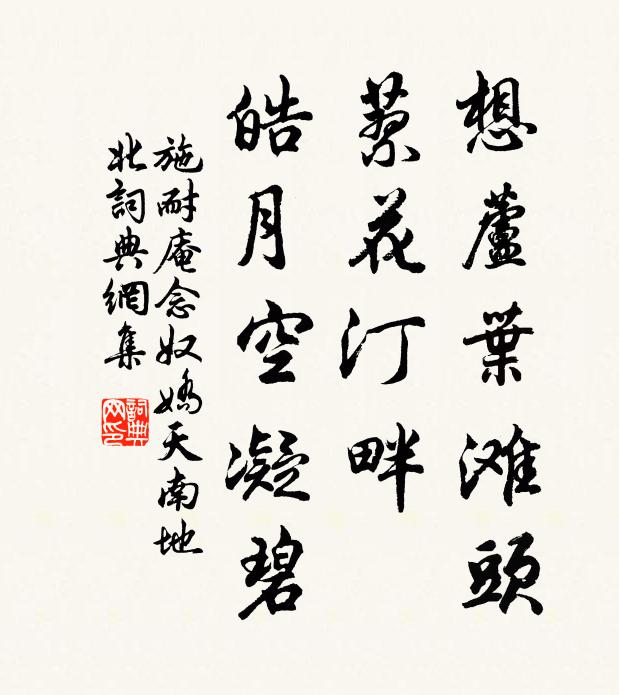 想蘆葉滩頭
蓼花汀畔
皓月空凝碧
施耐庵念奴嬌天南地
北詞典網集
詞典
网印